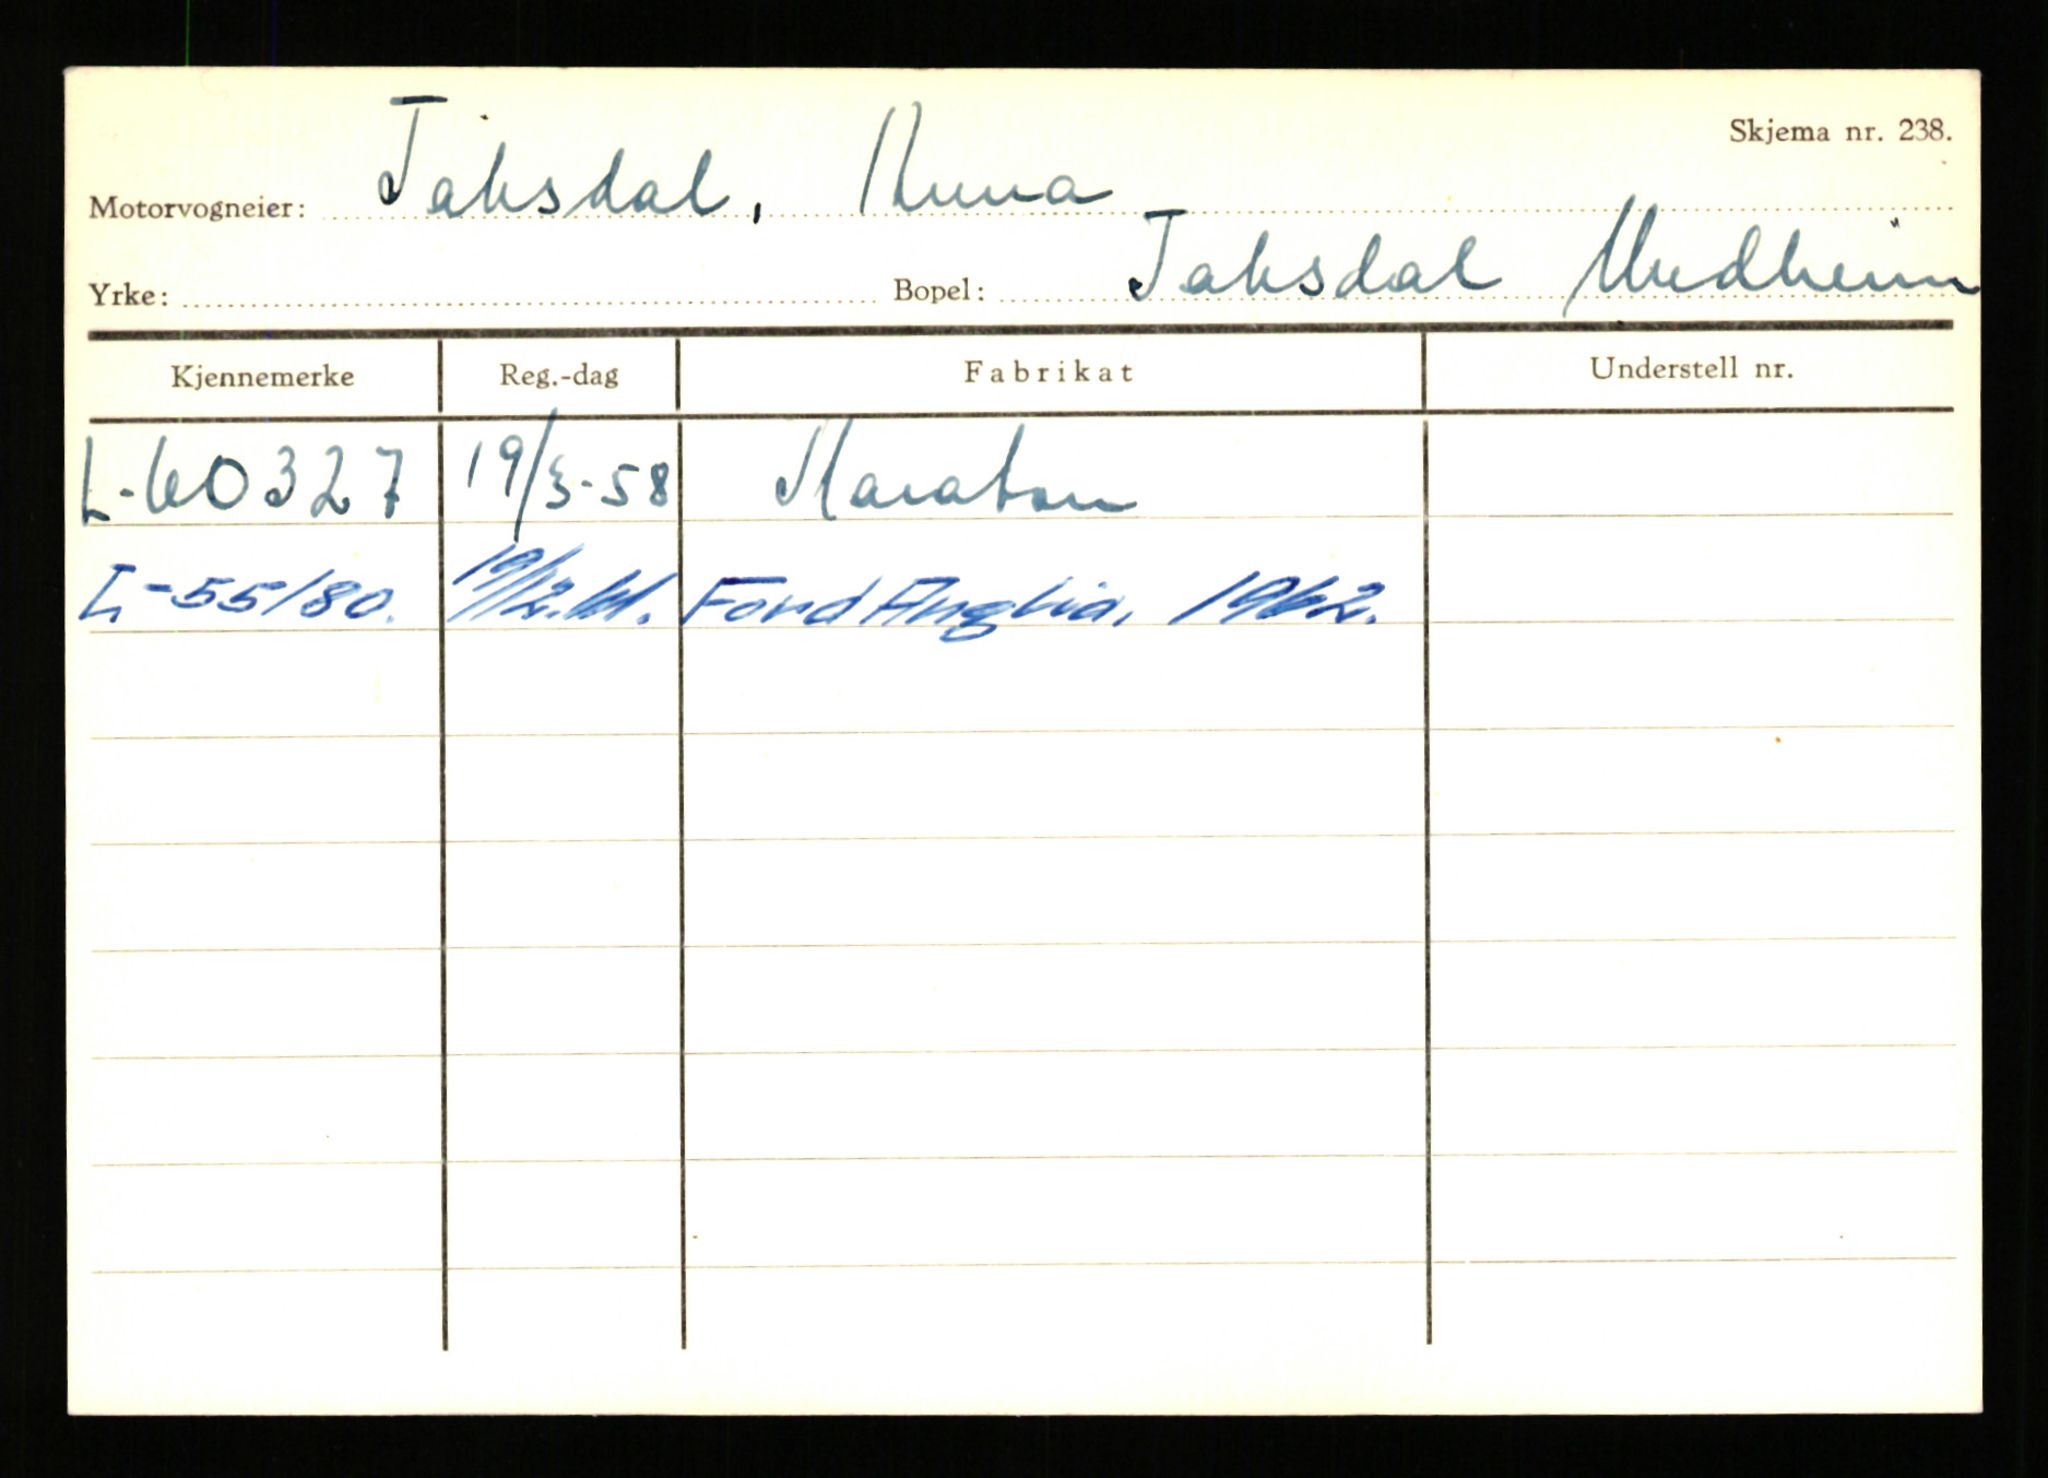 Skjema nr. 238.
Motorvogneier: Taksdal, Anna
Yrke: Bopel: Taksdal Undheim
Kjennemerke Reg.-dag Fabrikat Understell nr.
L-60327 19/3-58 Maraton
L-55180. 19/12.61. Ford Anglia, 1962.